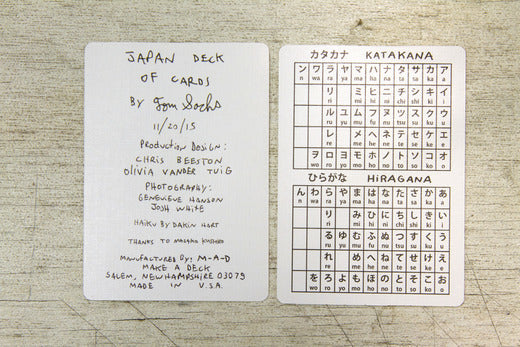 JAPAN DECK
OF CARDS
BY Tom Sachs
11/20/15
PRODUCTION DESIGN:
CHRIS BEESTON
OLIVIA VANDER TUIG
PHOTOGRAPHY:
GENEVIEVE HANSON
JOSH WHITE
HAIKU BY DAKIN HART
THANKS TO
MANUFACTURED BY: M-A-D
MAKE A DECK
SALEM, NEWHAMPSHIRE 03079
MADE IN U.S.A.
カタカナ KATAKANA
ン ワ ラ ヤ マ ハ ナ タ サ カ ア
n wa ra ya ma ha na ta sa ka a
リ ミ ヒ ニ チ シ キ イ
ri mi hi ni chi shi ki i
ル ユ ム フ ヌ ツ ス ク ウ
ru yu mu fu nu tsu su ku u
レ メ ヘ ネ テ セ ケ エ
re me he ne te se ke e
ヲ ロ ヨ モ ホ ノ ト ソ コ オ
wo ro yo mo ho no to so ko o
ひらがな HiRAGANA
ん わ ら や ま は な た さ か あ
n wa ra ya ma ha na ta sa ka a
り み ひ に ち し き い
ri mi hi ni chi shi ki i
る ゆ む ふ ぬ つ す く う
ru yu mu fu nu tsu su ku u
れ め へ ね て せ け え
re me he ne te se ke e
を ろ よ も ほ の と そ こ お
wo ro yo mo ho no to so ko o